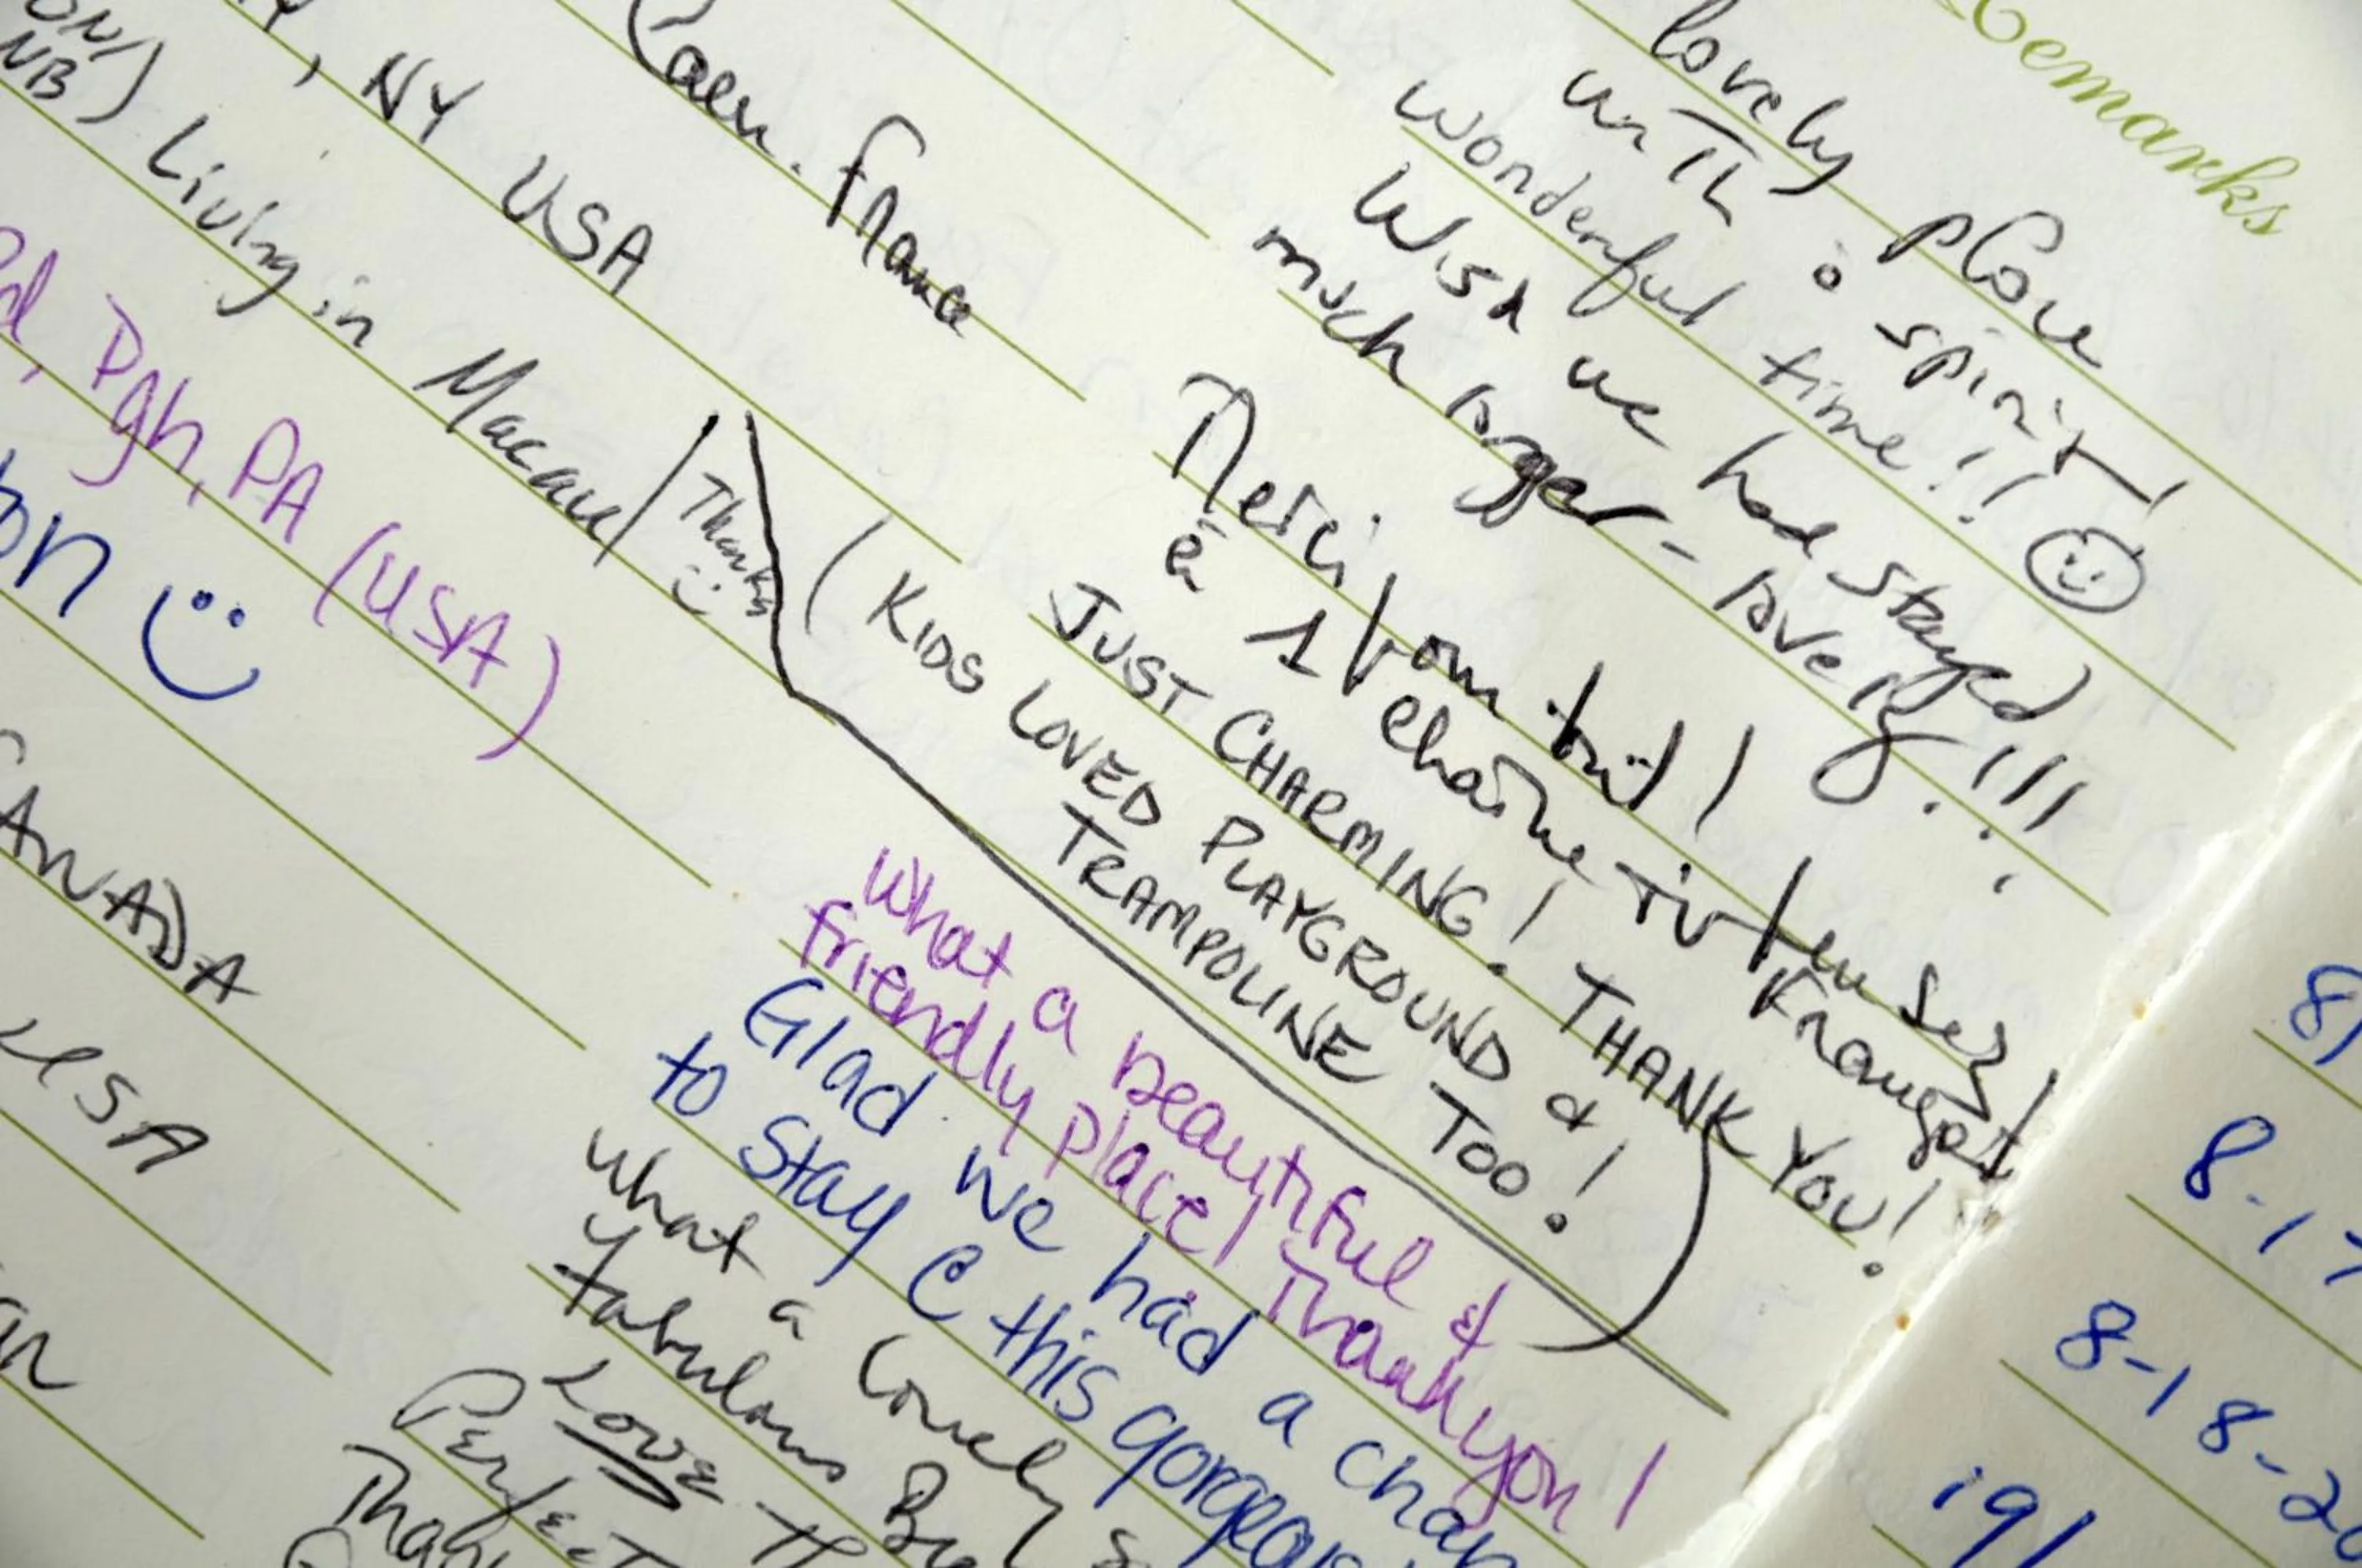 Remarks
lovely place
with a spirit!
wonderful time!!
Wish we had stayed
much longer - lovely!!!
Caen. France
Merci / bon
à 1 chaine
Français
, NY USA
JUST CHARMING! THANK YOU!
(KIDS LOVED PLAYGROUND &
TRAMPOLINE TOO!)
ON/
NB) Living in Macau
Thanks
Pgh, PA (USA)
What a beautiful &
friendly place! Thank you!
on
Glad we had a chan
to stay @ this gorgeous
CANADA
What a lovely
fabulous
USA
LOVE
PERFECT
8-1
8-18-20
19/